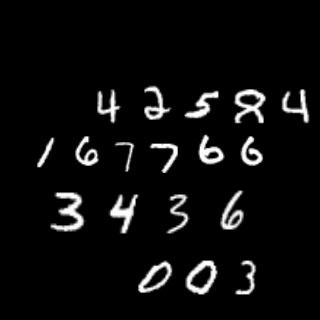 4 2 5 8 4
1 6 7 7 6 6
3 4 3 6
0 0 3